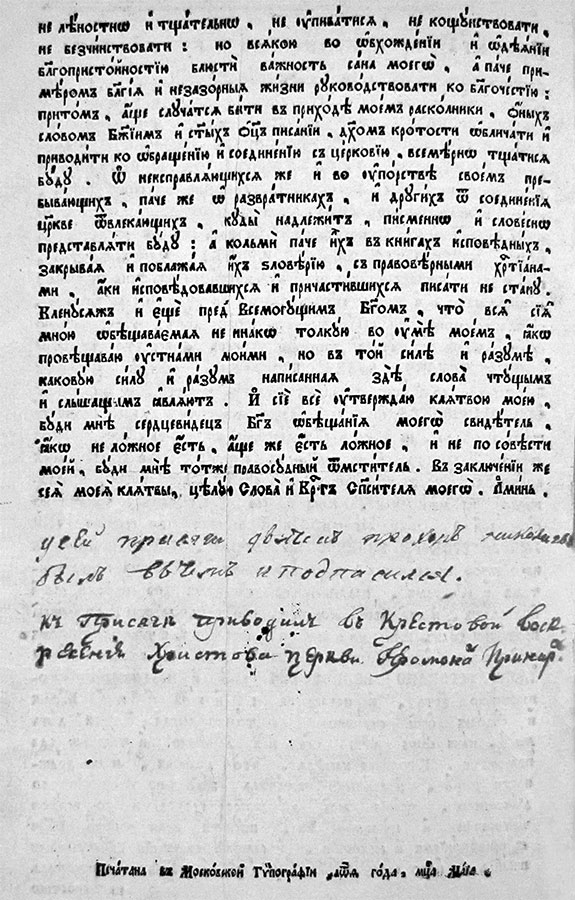 не лѣ́ностнѡ и҆ тща́тельнѡ , не ᲂу҆пива́тисѧ , не кощу́нствовати ,
не безчи́нствовати : но всѧ́кою во ѡ҆бхожде́нїи и҆ ѡ҆дѣѧ́нїи
бл҃гопристо́йностїю блюстѝ ва́жность са́на моегѡ̀ , а҆ па́че при-
мѣ́ромъ бл҃гі́ѧ и҆ незазо́рныѧ жи́зни рꙋково́дствовати ко бл҃гоче́стїю :
прито́мъ , а҆́ще случа́тсѧ бы́ти въ прихо́дѣ мое́мъ раско́льники , ѻ҆́ныхъ
сло́вомъ Бж҃їимъ и҆ ст҃ы́хъ ѻ҆ц҃ъ писа́нїи , дх҃омъ кро́тости ѡ҆блича́ти и҆
приводи́ти ко ѡ҆браще́нїю и҆ соедине́нїю съ це́рковїю , всемѣ́рнѡ тща́тисѧ
бꙋ́дꙋ . Ѡ҆ неисправлѧ́ющихсѧ же и҆ во ᲂу҆по́рствѣ свое́мъ пре-
быва́ющихъ , па́че же ѡ҆ развра́тникахъ , и҆ дрꙋги́хъ ѿ соедине́нїѧ
це́ркве ѿвлека́ющихъ , кꙋды̀ надлежи́тъ , пи́сменнѡ и҆ слове́снѡ
представлѧ́ти бꙋ́дꙋ : а҆ кольмѝ па́че и҆́хъ въ кни́гахъ и҆сповѣ́дныхъ ,
закрыва́ѧ и҆ поблажа́ѧ и҆́хъ ѕловѣ́рїю , съ правовѣ́рными хрⷭ҇тїа́на-
ми , а҆́ки и҆сповѣ́довавшихсѧ и҆ причасти́вшихсѧ писа́ти не ста́нꙋ .
Кленꙋ́сѧжъ и҆ є҆щѐ пред̾ Всемогꙋ́щимъ Бг҃омъ , что̀ всѧ̑ сїѧ̑
мно́ю ѡ҆бѣщава́емаѧ не и҆на́кѡ толкꙋ́ю во ᲂу҆мѣ̀ мое́мъ , ꙗ҆́кѡ
провѣщава́ю ᲂу҆стна́ми мои́ми , но въ то́й си́лѣ и҆ ра́зꙋмѣ ,
какову́ю си́лꙋ и҆ ра́зꙋмъ напи́санная здѣ̀ слова̀ чтꙋ́щымъ
и҆ слы́шащымъ ꙗ҆влѧ́ютъ . И҆ сїѐ всѐ ᲂу҆твержда́ю клѧ́твою мое́ю ,
бꙋ́ди мнѣ̀ сердцеви́децъ Бг҃ъ ѡ҆бѣща́нїѧ моегѡ̀ свидѣ́тель ,
ꙗ҆́кѡ не ло́жное є҆́сть , а҆́ще же є҆́сть ло́жное , и҆ не по со́вѣсти
мое́й , бꙋ́ди мнѣ̀ то́тже правосꙋ́дный ѿмсти́тель . Въ заключе́нїи же
сеѧ̀ моеѧ̀ клѧ́твы , цѣлꙋ́ю Слова̀ и҆ Крⷭ҇тъ Сп҃си́телѧ моегѡ̀ . А҆ми́нь .
у сей присяги прохоръ
былъ и подписался.
къ Присяги приводилъ въ Крестовой воск-
ресенія Христова церкви Іеромона
Печа́тана въ Моско́вской Тѷпогра́фїи ҂аѱ҃ѻѧ го́да , мц҃а Ма́їа .